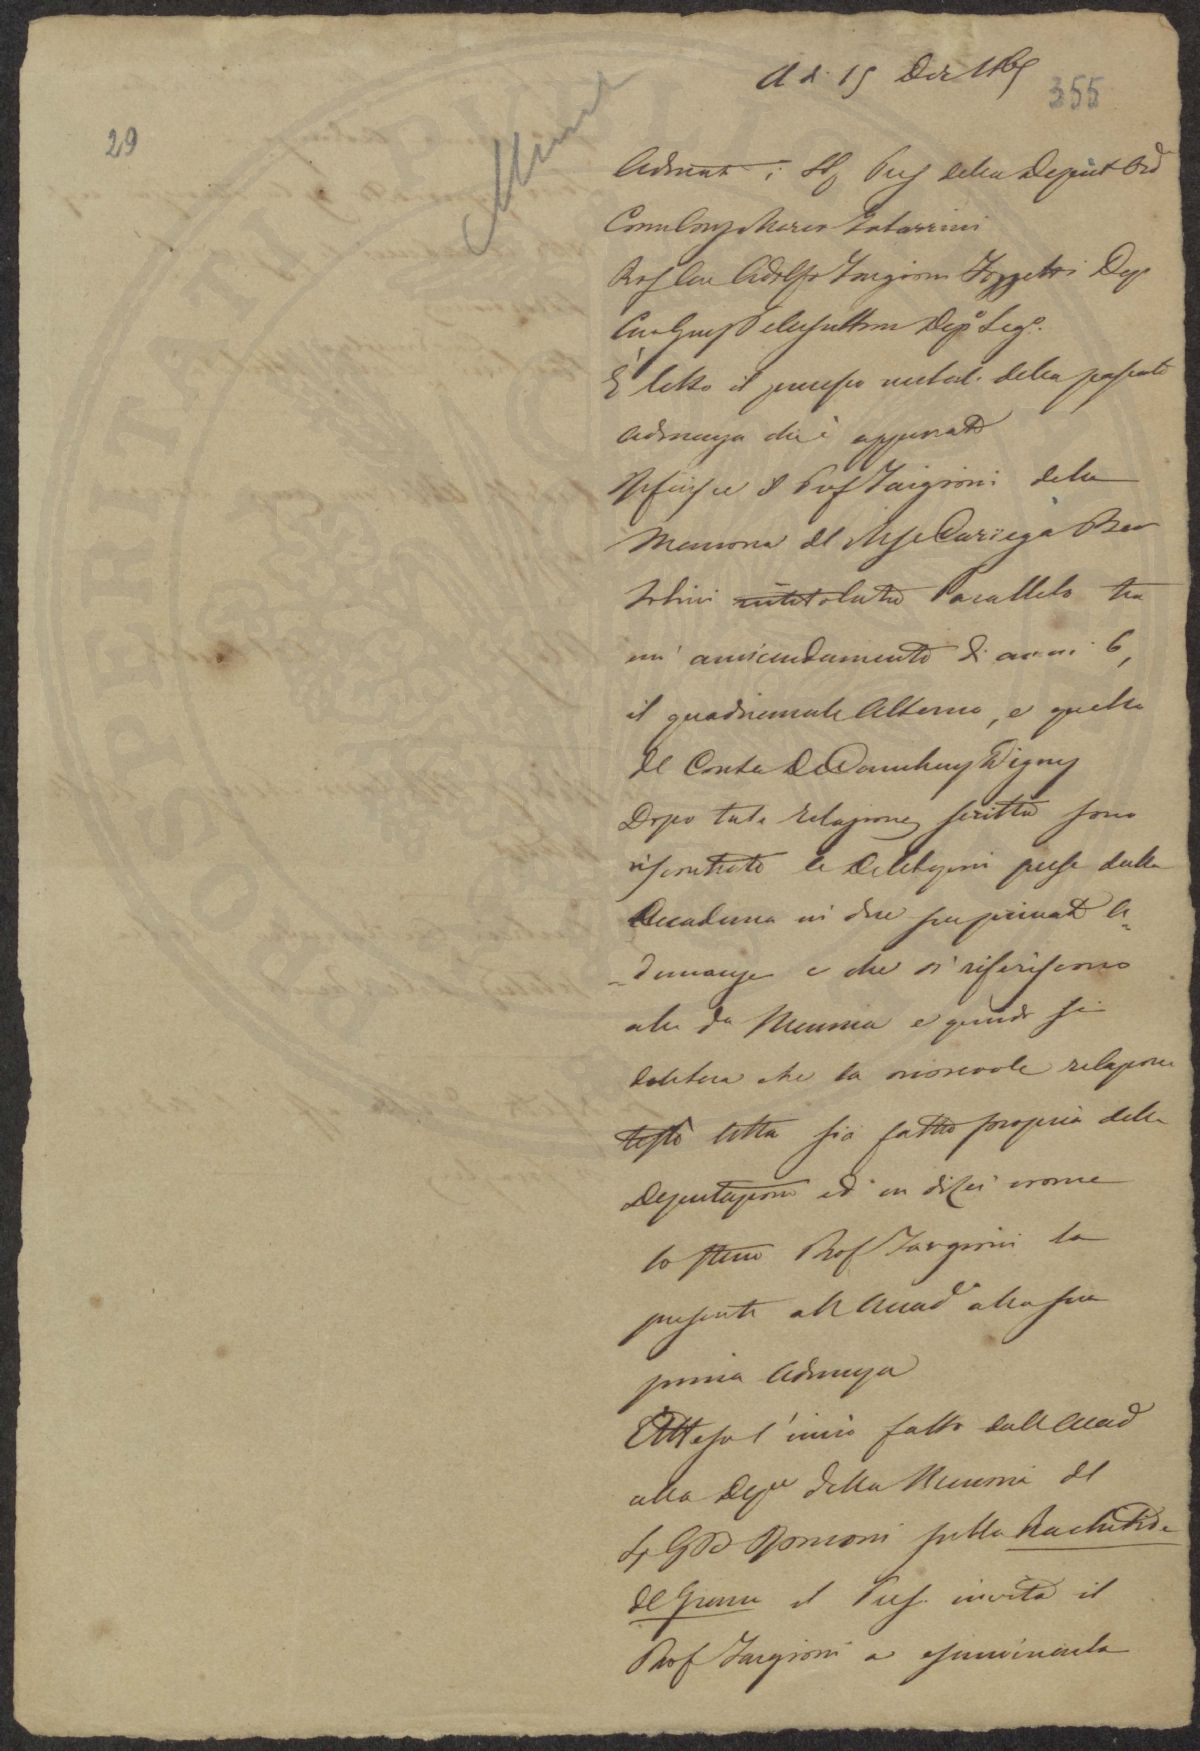 A dì 15 Dic 1865
355
29
Minut
Adunat i SS Pres della Deput Ord
Comm Marco Tabarrini
Prof Cav Adolfo Targioni Tozzetti Dep
Pelleg Dep Seg.
È letto il processo verbal. della passata
adunanza che è approvato
Riferisce il Prof Targioni della
Memoria del March Carrega Ber
tolini intitolata Parallelo tra
un' avvicendamento di anni 6,
il quadriennale Alterno, e quello
del Conte De Cambray Digny
Dopo tale relazione scritta sono
riscontrate le Deliberazioni prese dalla
Accademia in due sue private A=
=dunanze e che si riferiscono
alla da Memoria e quindi si
delibera che la onorevole relazione
testè letta sia fatta propria della
Deputazione ed in di lei nome
lo stesso Prof Targioni la
presenti all Accad alla sua
prima Adunanza
Atteso l'invio fatto dall Accad
alla Depne della Memoria del
S G B Ronconi sulla Rachitide
del Grano il Pres. invita il
Prof Targioni a esaminarla